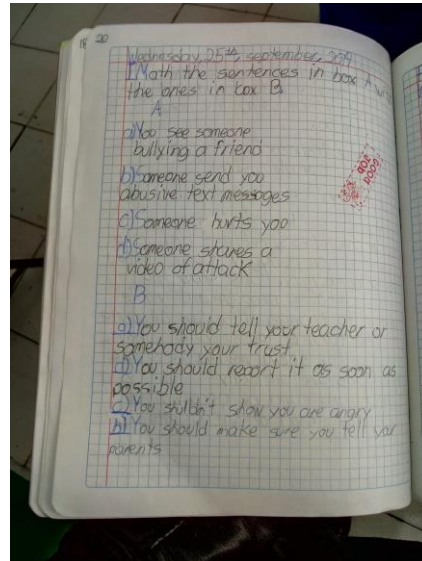 20
Wednesday, 25th, september, 2019
I Math the sentences in box A with
the ones in box B
A
a) You see someone
bullying a friend
b) Someone send you
abusive text messages
c) Someone hurts yoo
d) Someone shares a
video of attack
B
a) You should tell your teacher or
somebody your trust
d) You should report it as soon as
possible
c) You shuldn't show you are angry
b) You should make sure you tell your
parents
GOOD
JOB